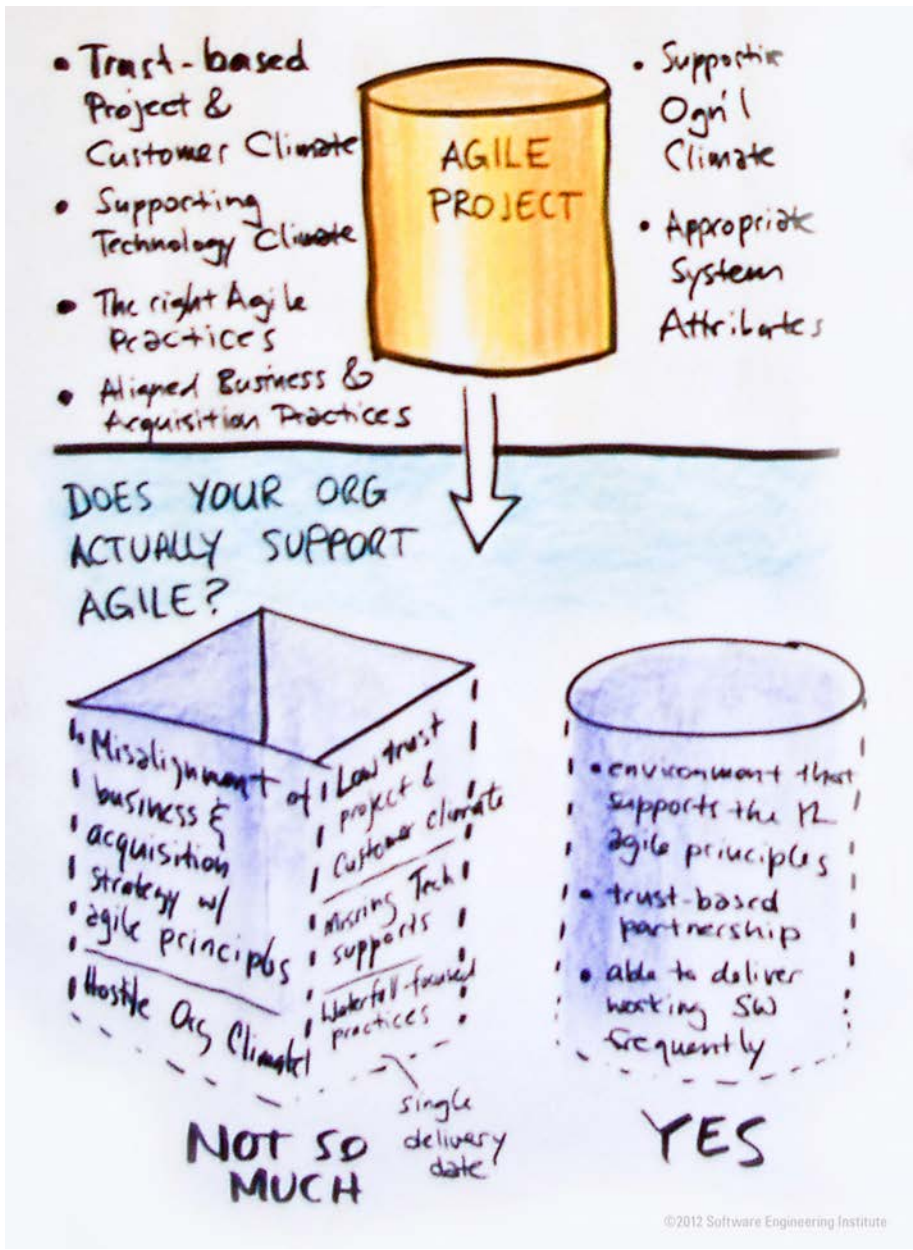 • Trust-based
Project &
Customer Climate
• Supporting
Technology Climate
• The right Agile
Practices
• Aligned Business &
Acquisition Practices
AGILE
PROJECT
• Supportive
Ogn'l
Climate
• Appropriate
System
Attributes
DOES YOUR ORG
ACTUALLY SUPPORT
AGILE?
• Misalignment of
business &
acquisition
strategy w/
agile principles
Hostile Org Climate
Low trust
project &
Customer climate
Missing Tech
supports
Waterfall-focused
practices
single
delivery
date
NOT SO
MUCH
• environment that
supports the 12
agile principles
• trust-based
partnership
• able to deliver
working SW
frequently
YES
©2012 Software Engineering Institute